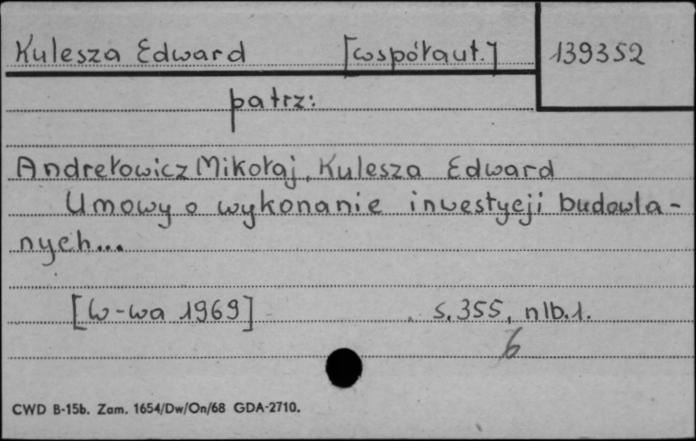 Kulesza Edward [współaut.] 139352
patrz:
Andrełowicz Mikołaj, Kulesza Edward
Umowy o wykonanie inwestycji budowla-
nych...
[W-wa 1969] s. 355, nlb. 1.
6
CWD B-15b. Zam. 1654/Dw/On/68 GDA-2710.